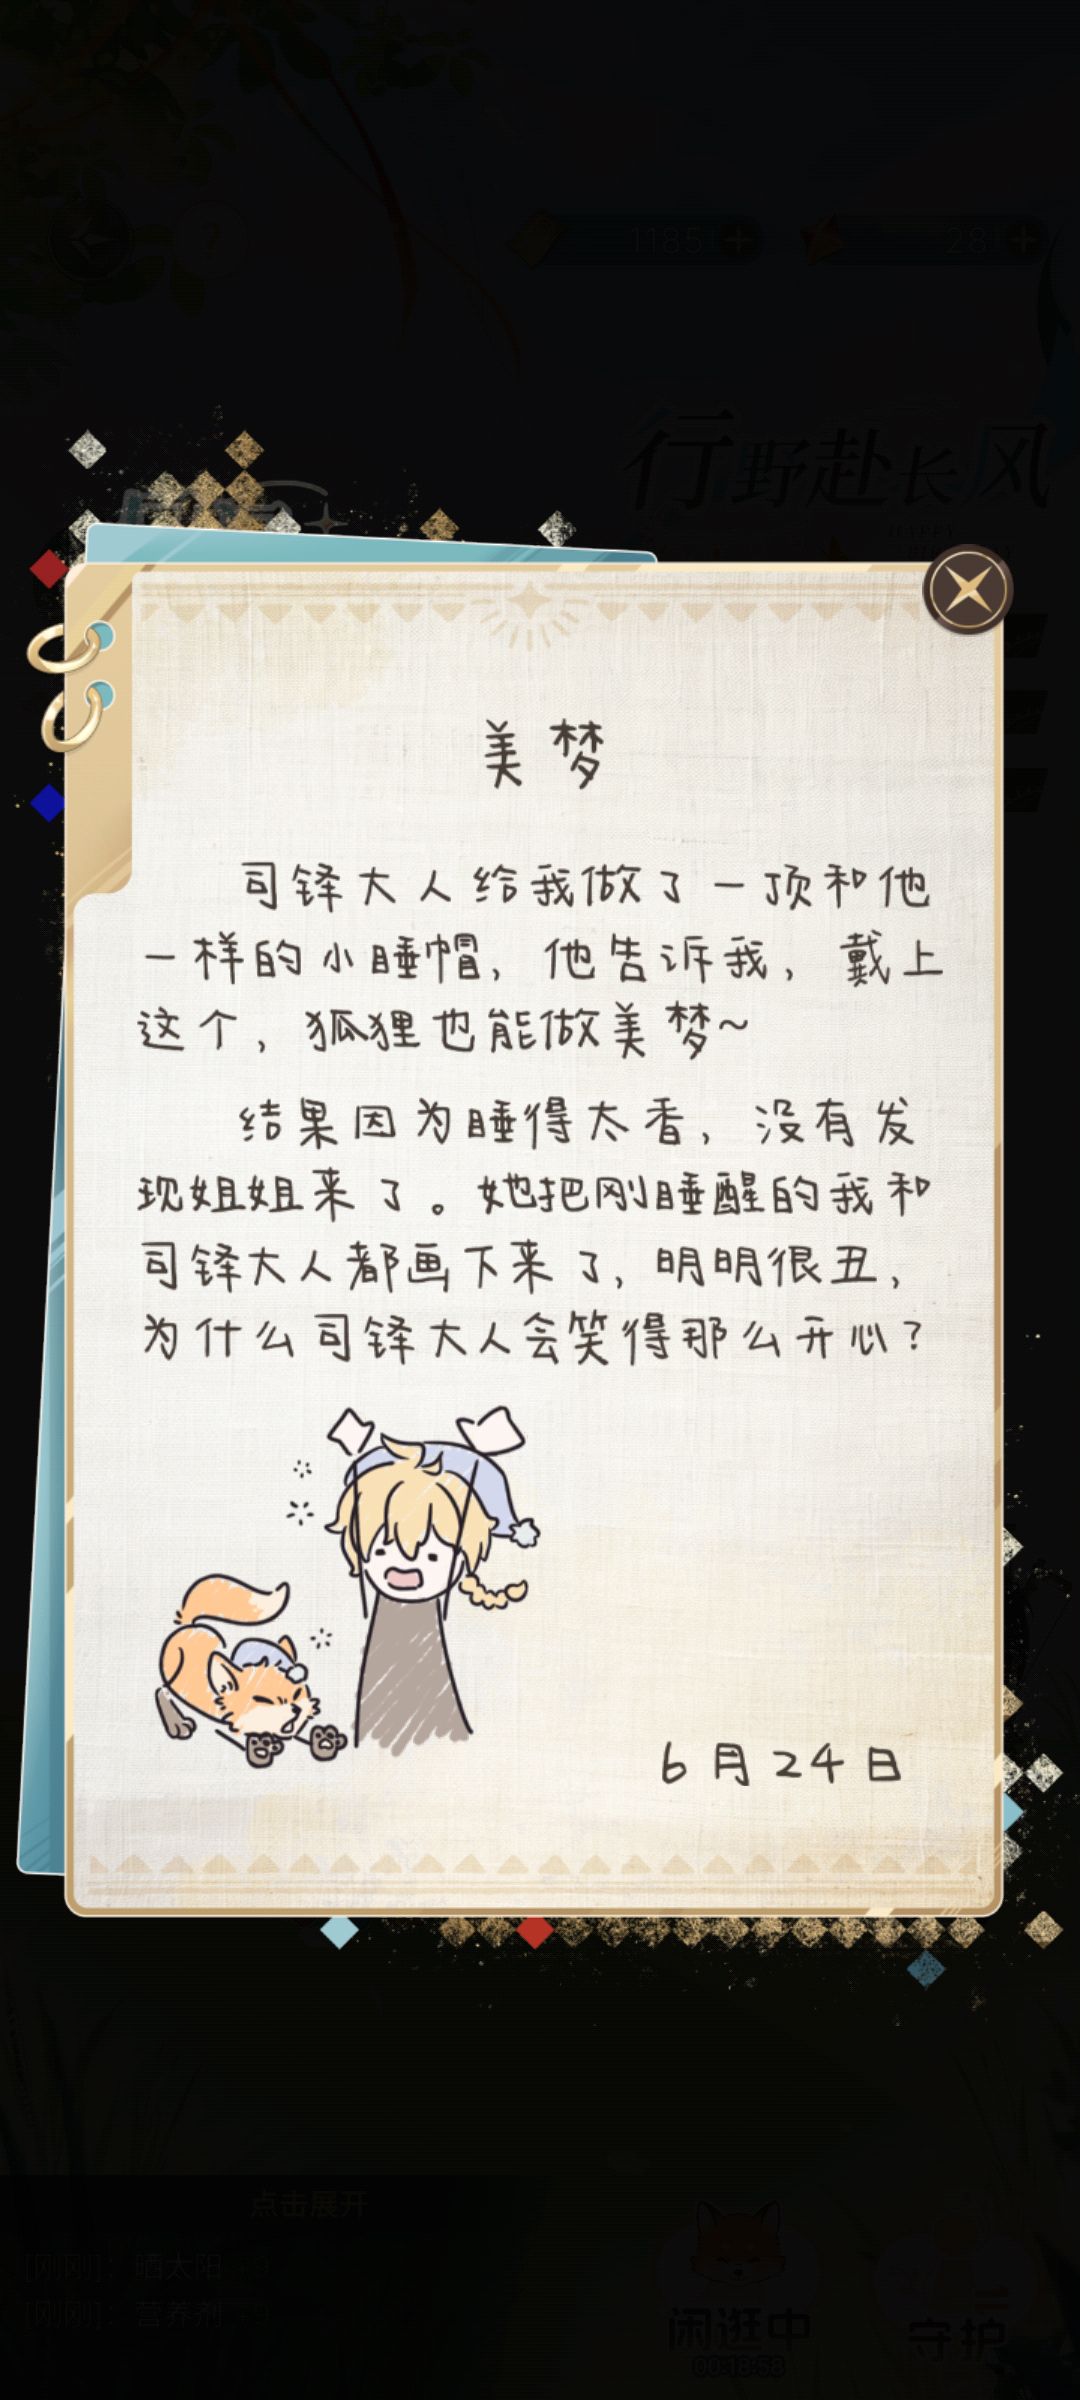 1185
28
行野赴长风
HAPPY
美梦
司铎大人给我做了一顶和他
一样的小睡帽，他告诉我，戴上
这个，狐狸也能做美梦~
结果因为睡得太香，没有发
现姐姐来了。她把刚睡醒的我和
司铎大人都画下来了，明明很丑，
为什么司铎大人会笑得那么开心？
6月24日
点击展开
[刚刚]：晒太阳 +9
[刚刚]：营养剂 +9
闲逛中
00:18:58
守护